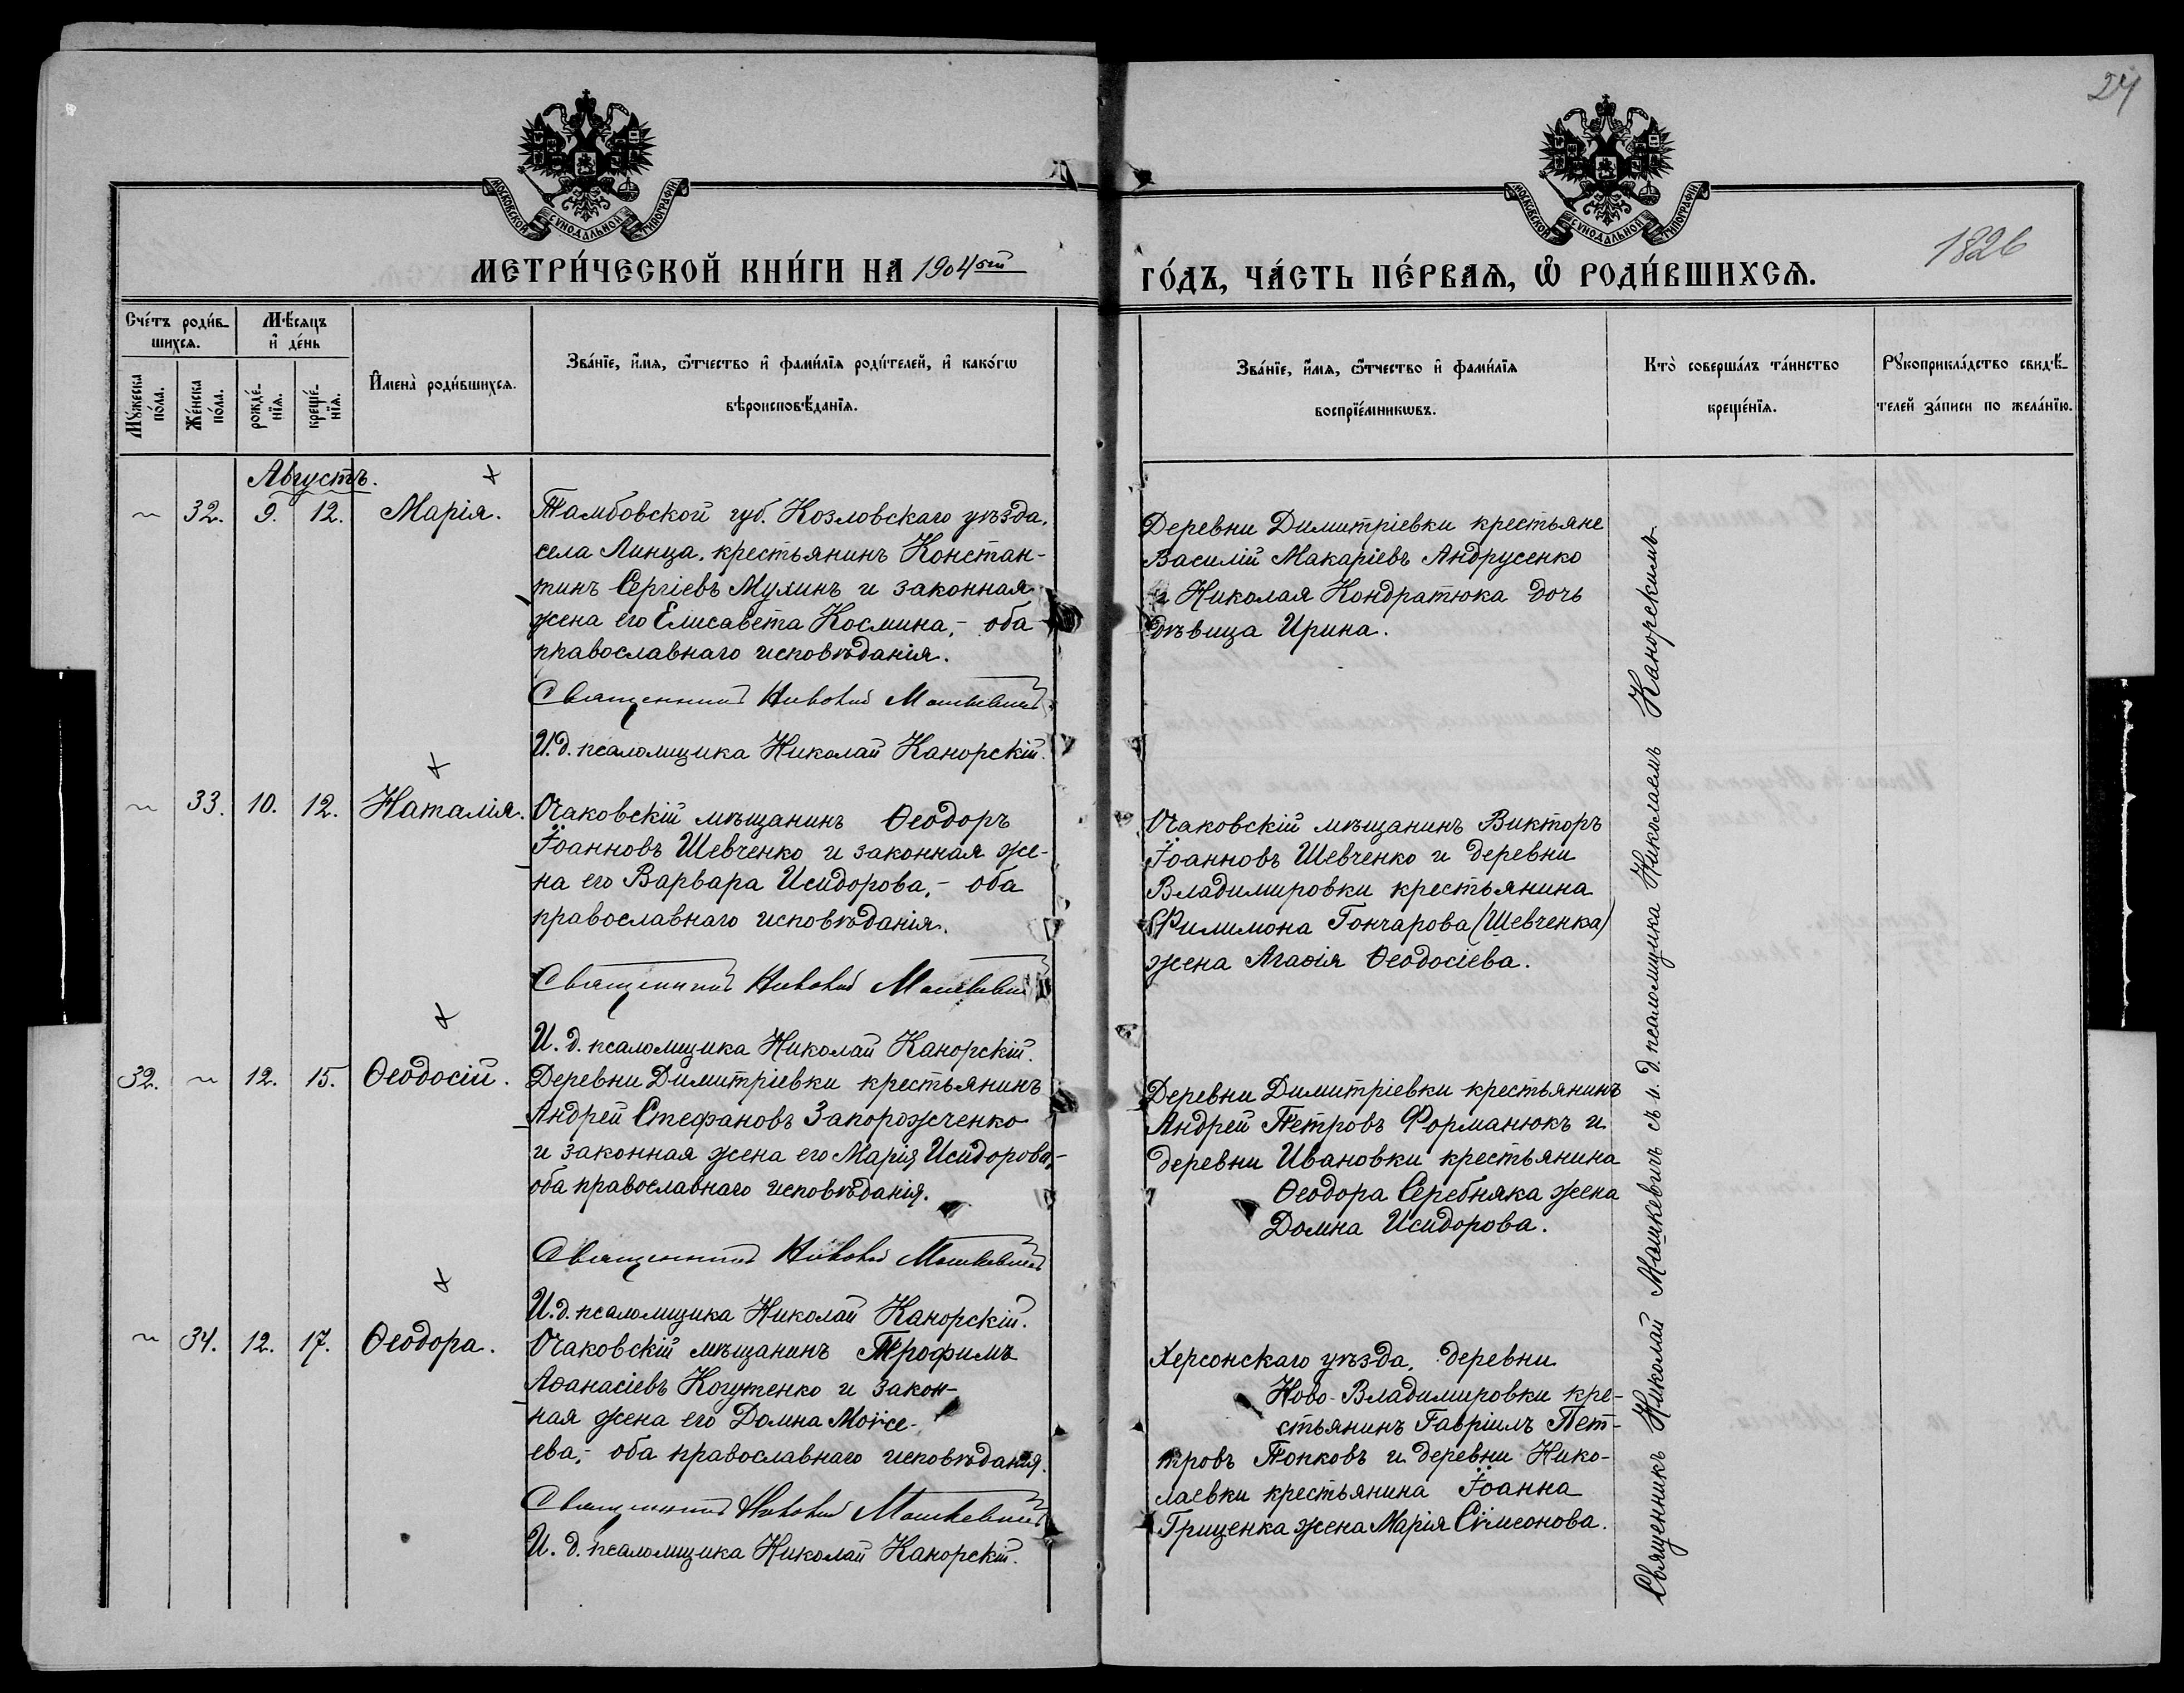 24
1826
МОСКОВСКОЙ СѴНОДАЛЬНОЙ ТИПОГРАФІИ
МОСКОВСКОЙ СѴНОДАЛЬНОЙ ТИПОГРАФІИ
МЕТРИ́ЧЕСКОЙ КНИ́ГИ НА 1904ый
ГО́ДЪ, ЧА́СТЬ ПЕ́РВАѦ, Ѡ҆ РОДИ́ВШИХСѦ.
Сче́тъ роди́в-
шихсѧ.
Мꙋ́жеска
по́ла.
Же́нска
по́ла.
Мѣ́сѧцъ
и҆ де́нь
рожде́-
нїѧ.
креще́-
нїѧ.
И҆мена̀ роди́вшихсѧ.
Зва́нїе, и҆́мѧ, ѻ҆́тчество и҆ фами́лїѧ роди́телей, и҆ како́гѡ
вѣроисповѣ́данїѧ.
Зва́нїе, и҆́мѧ, ѻ҆́тчество и҆ фами́лїѧ
воспрїе́мникѡвъ.
Кто̀ соверша́лъ та́инство
креще́нїѧ.
Рꙋкоприкла́дство свидѣ́-
телей за́писи по жела́нїю.
Августъ.
32. 9. 12. Марія.
Тамбовской губ. Козловскаго уѣзда,
села Линца, крестьянинъ Констан-
тинъ Сергіевъ Мулинъ и законная
жена его Елисавета Космина,- оба
православнаго исповѣданія.
Священникъ Николай Машкевичъ
И.д. псаломщика Николай Канорскій.
Деревни Димитріевки крестьяне
Василій Макаріевъ Андрусенко
и Николая Кондратюка дочь
дѣвица Ирина.
33. 10. 12. Наталія.
Очаковскій мѣщанинъ Ѳеодоръ
Іоанновъ Шевченко и законная же-
на его Варвара Исидорова,- оба
православнаго исповѣданія.
Священникъ Николай Машкевичъ
И. д. псаломщика Николай Канорскій.
Очаковскій мѣщанинъ Викторъ
Іоанновъ Шевченко и деревни
Владимировки крестьянина
Филимона Гончарова (Шевченка)
жена Агаѳія Ѳеодосіева.
32. 12. 15. Ѳеодосій.
Деревни Димитріевки крестьянинъ
Андрей Стефановъ Запорожченко
и законная жена его Марія Исидорова,-
оба православнаго исповѣданія.
Священникъ Николай Машкевичъ
И.д. псаломщика Николай Канорскій.
Деревни Димитріевки крестьянинъ
Андрей Петровъ Форманюкъ и
деревни Ивановки крестьянина
Ѳеодора Серебняка жена
Домна Исидорова.
34. 12. 17. Ѳеодора.
Очаковскій мѣщанинъ Трофимъ
Аѳанасіевъ Когутенко и закон-
ная жена его Домна Моисе-
ева,- оба православнаго исповѣданія.
Священникъ Николай Машкевичъ
И. д. псаломщика Николай Канорскій.
Херсонскаго уѣзда, деревни
Ново-Владимировки кре-
стьянинъ Гавріилъ Пет-
тровъ Попковъ и деревни Нико-
лаевки крестьянина Іоанна
Гриценка жена Марія Сѵмеонова.
Священникъ Николай Машкевичъ съ и. д. псаломщика Николаемъ Канорскимъ